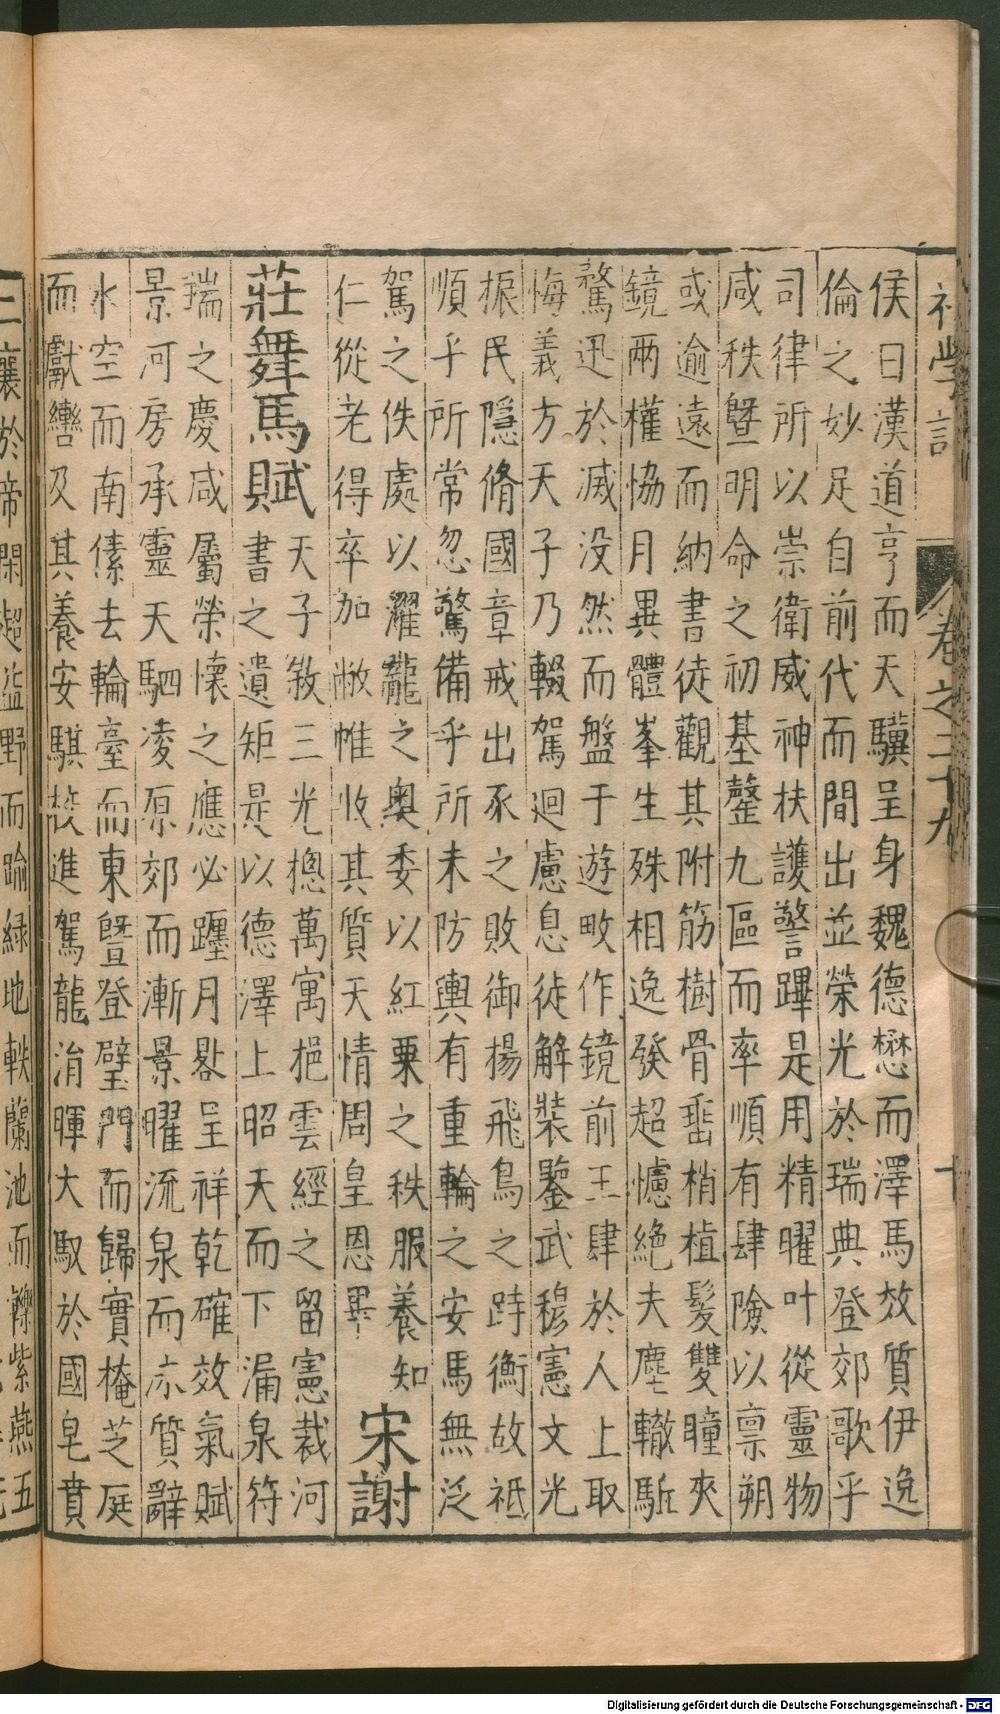 初學記 卷之二十九 十
侯日漢道亨而天驥呈身魏德懋而澤馬效質伊逸
倫之妙足自前代而間出並榮光於瑞典登郊歌乎
司律所以崇衛威神扶護警蹕是用精曜叶從靈物
咸秩曁明命之初基罄九區而率順有肆險以禀朔
或逾遠而納書徒觀其附筋樹骨垂梢植髮雙瞳夾
鏡兩權協月異體峯生殊相逸發超攄絶夫塵轍駈
騖迅於滅没然而盤于遊畋作鏡前王肆於人上取
悔義方天子乃輟駕迴慮息徒解裝鑒武穆憲文光
振民隱脩國章戒出豕之敗御楊飛鳥之跱衡故祗
順乎所常忽驚備乎所未防輿有重輪之安馬無泛
駕之佚處以濯龍之奧委以紅粟之秩服養知
仁從老得卒加敝帷收其質天情周皇恩畢
宋謝
莊舞馬賦
天子敘三光揔萬寓挹雲經之留憲裁河
書之遺矩是以德澤上昭天而下漏泉符
瑞之慶咸屬榮懷之應必躔月晷呈祥乾確效氣賦
景河房承靈天駟凌原郊而漸景曜流泉而質辭
水空而南傃去輪臺而東曁登璧門而歸實掩芝庭
而獻轡及其養安騏校進駕龍涓暉大馭於國皂賁
襄於帝閑超盜野而踰緑地軼蘭池而轢紫燕五